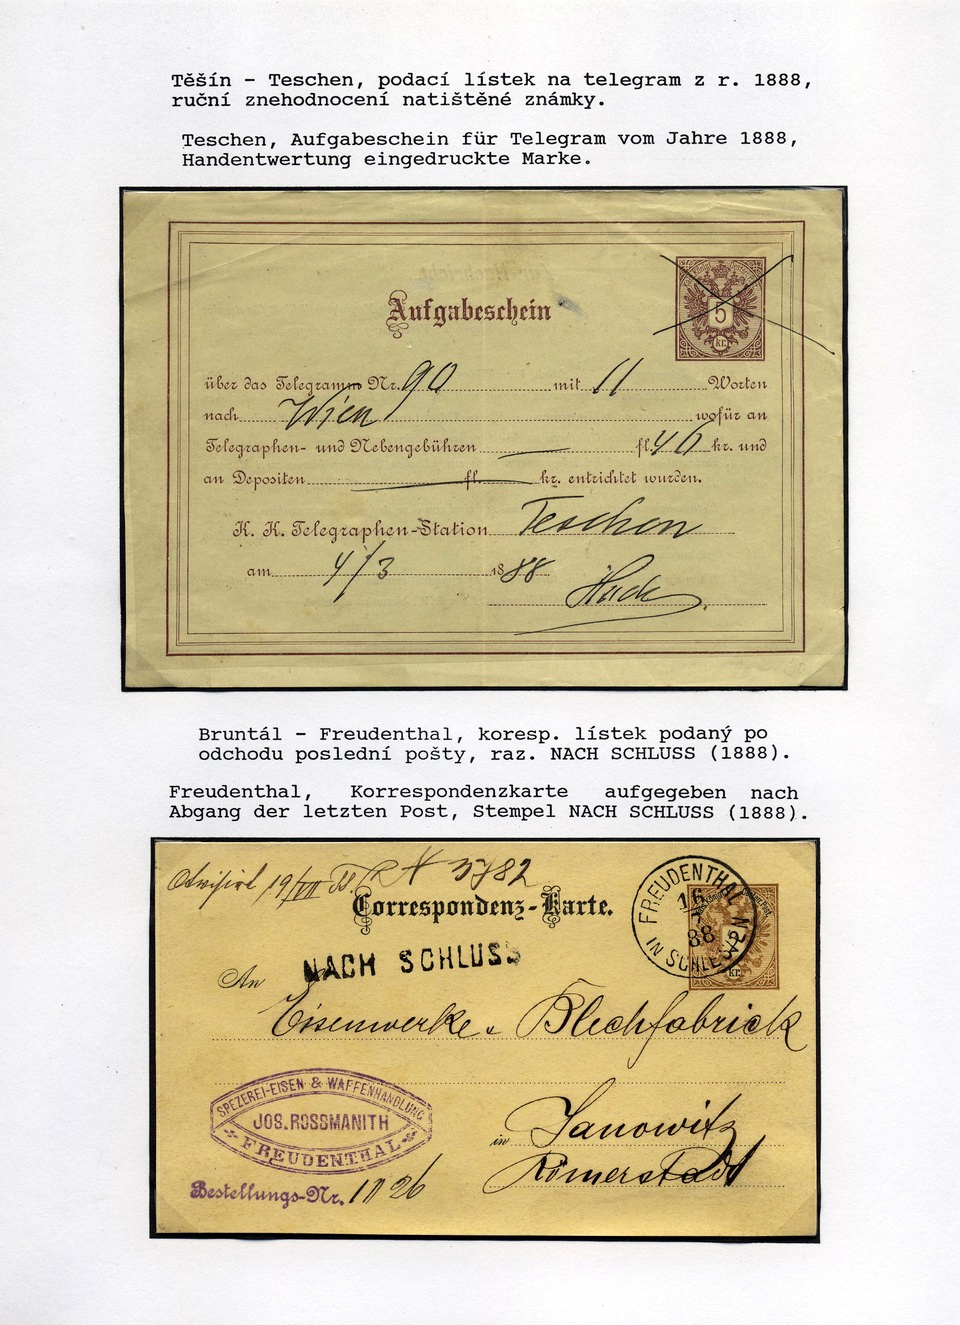 Těšín - Teschen, podací lístek na telegram z r. 1888,
ruční znehodnocení natištěné známky.
Teschen, Aufgabeschein für Telegram vom Jahre 1888,
Handentwertung eingedruckte Marke.
Aufgabeschein
5
kr.
über das Telegramm Nr. 90 mit 11 Worten
nach Wien wofür an
Telegraphen- und Nebengebühren — fl. 40 kr. und
an Depositen — fl. — kr. entrichtet wurden.
K. K. Telegraphen-Station Teschen
am 4/3 1888
Bruntál - Freudenthal, koresp. lístek podaný po
odchodu poslední pošty, raz. NACH SCHLUSS (1888).
Freudenthal, Korrespondenzkarte aufgegeben nach
Abgang der letzten Post, Stempel NACH SCHLUSS (1888).
19/VII 88. N 3782
Correspondenz-Karte.
FREUDENTHAL
16
7
88
IN SCHLESIEN
2
kr.
NACH SCHLUSS
An Eisenwerke u. Blechfabrick
SPEZEREI-EISEN & WAFFENHANDLUNG
JOS. ROSSMANITH
FREUDENTHAL
in Janowitz
Römerstadt
Bestellungs-Nr. 1126